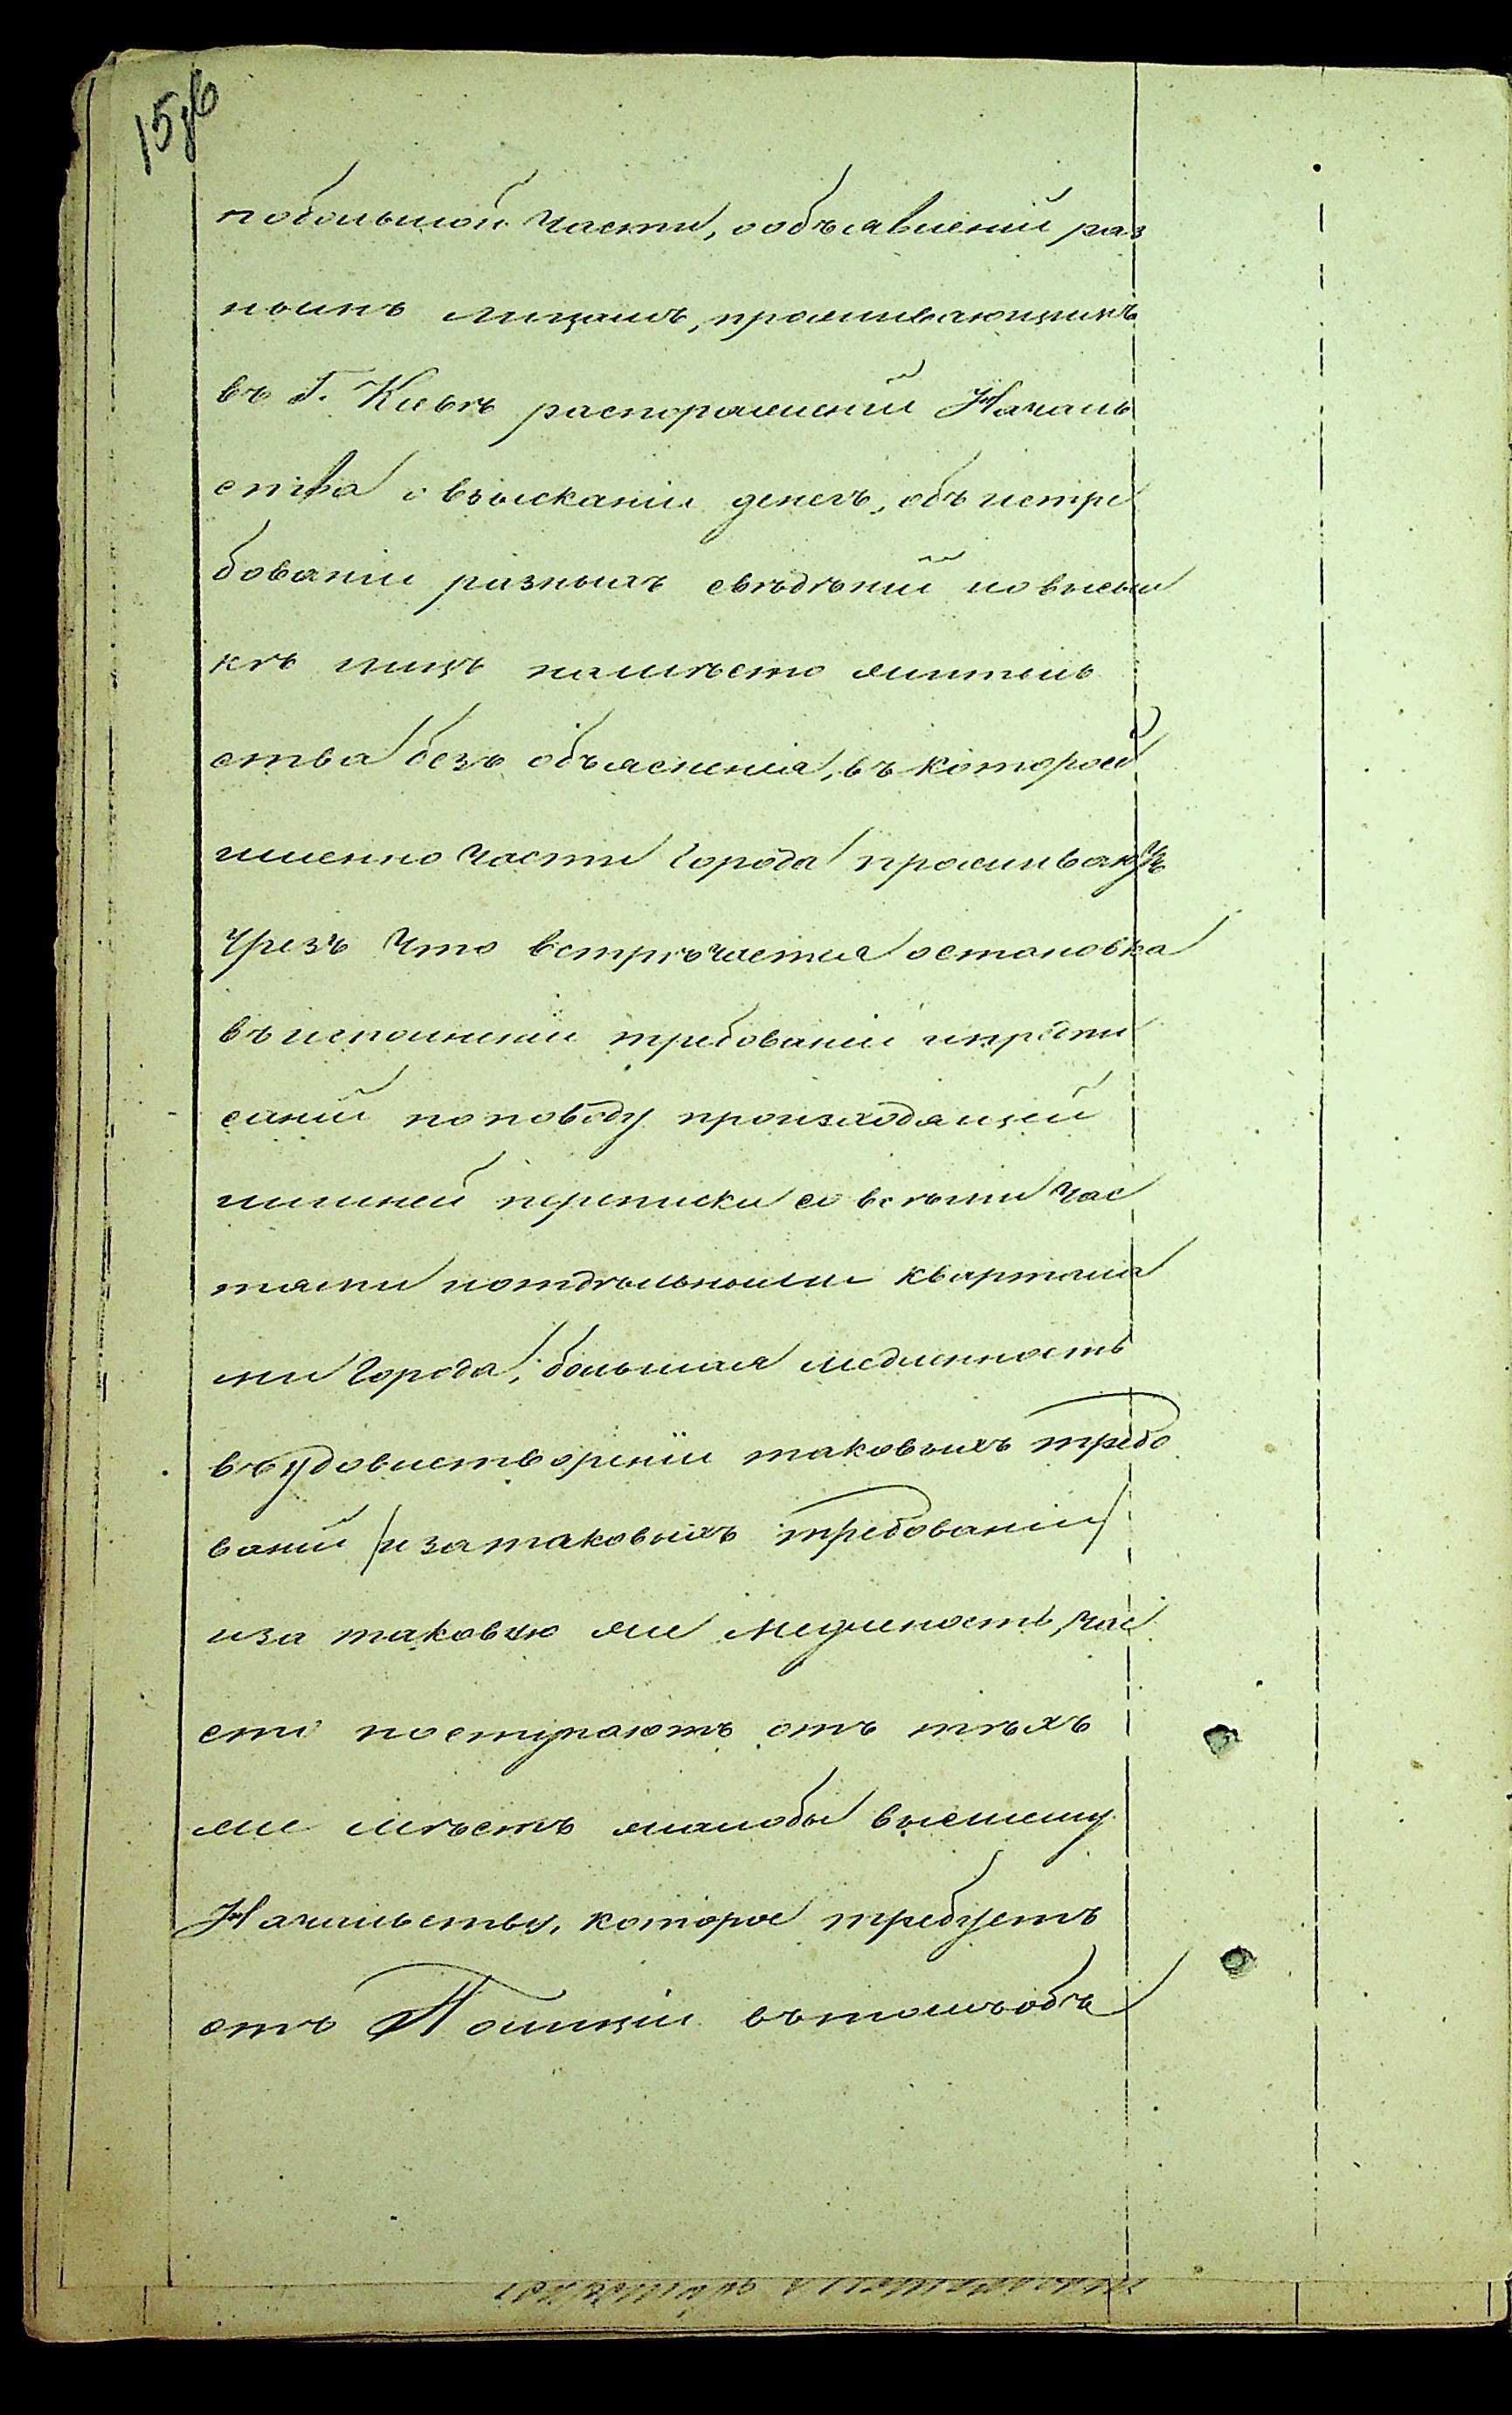 побольшой части, о объявленіи раз
нымъ лицамъ, проживающимъ
въ Г. Кіевѣ распоряженій Началь
ства о взысканіи денегъ, объ истре
бованіи разныхъ свѣдѣній и о высыл
кѣ лицъ на мѣсто житель
ства безъ объясненія, въ которой
именно части города проживаютъ
чрезъ что встрѣчается остановка
въ исполненіи требованій и предпи
саній по поводу произходящей
лишней переписки со всѣми час
тями и отдѣльными квартала
ми города, большая медленность
въ удовлетвореніи таковыхъ требо
ваній /и за таковыхъ требованій/
и за таковую же медленость, час
сто поступаютъ отъ тѣхъ
же мѣстъ жалобы высшему
Начальству, которое требуетъ
отъ Полиціи въ томъ объ